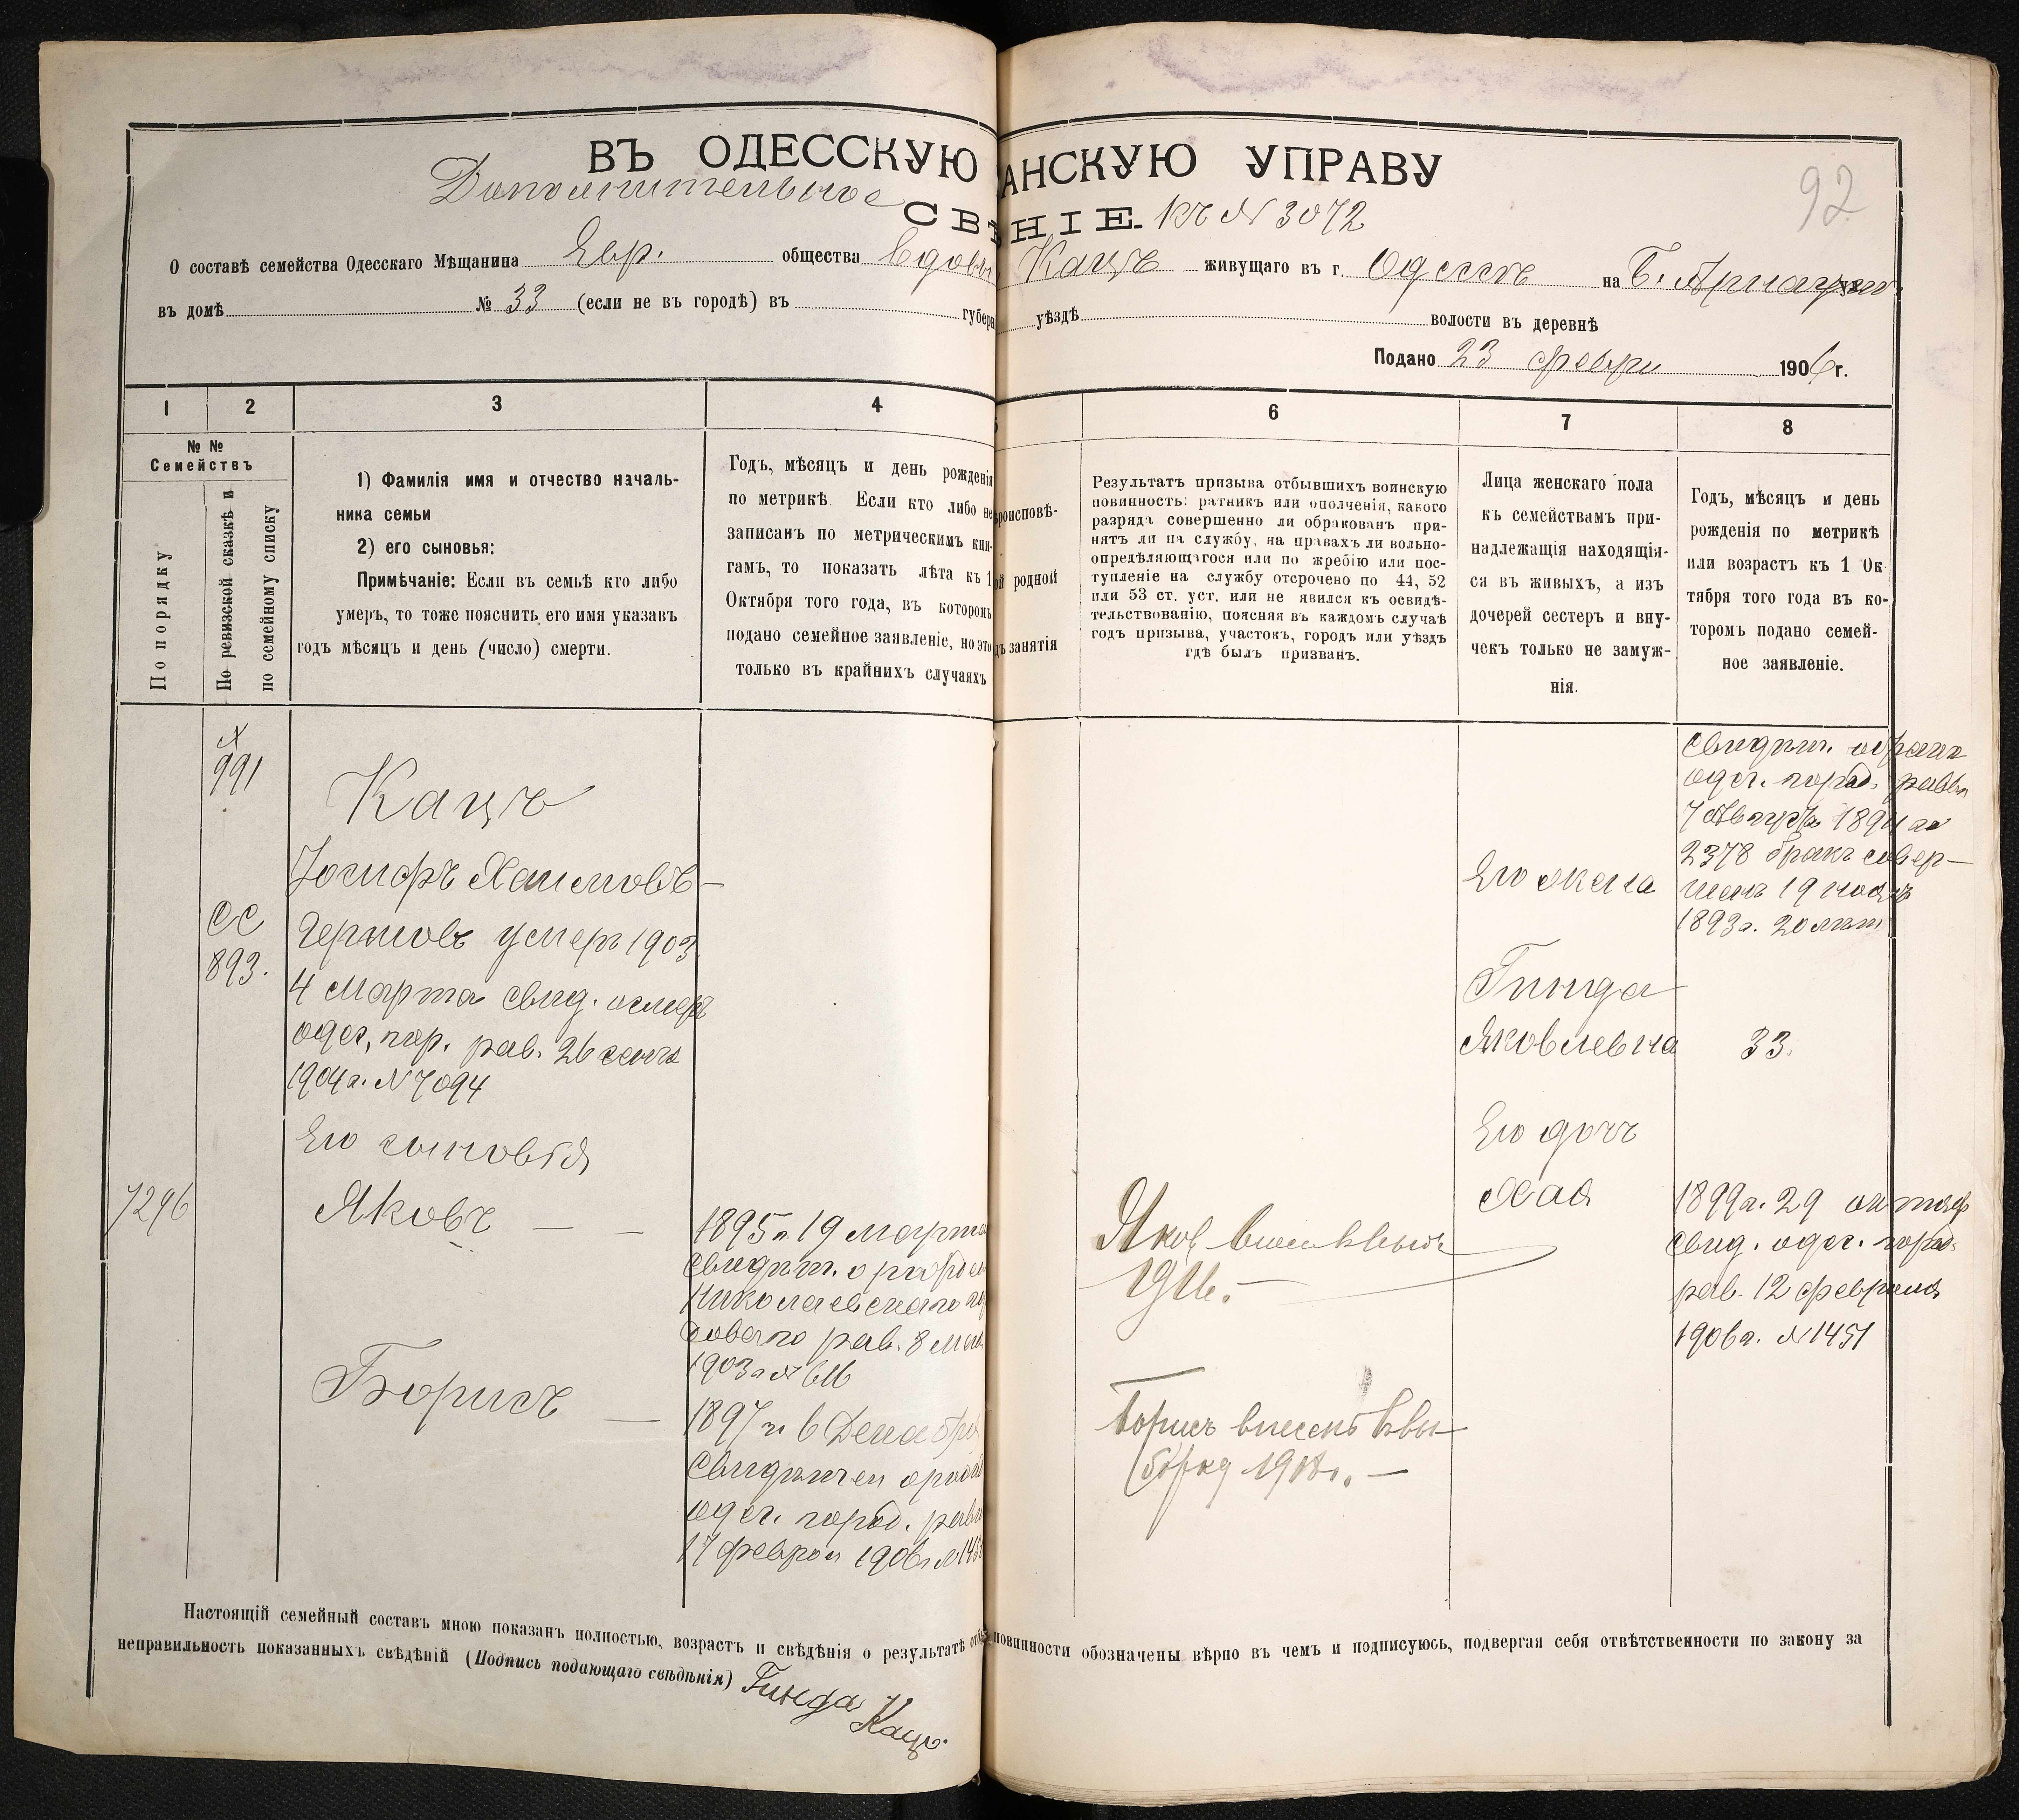 ВЪ ОДЕССКУЮ АНСКУЮ УПРАВУ
92
Дополнительное
СВѢ НІЕ. къ № 3072
О составѣ семейства Одесскаго Мѣщанина Евр. общества вдовы Кацъ живущаго въ г. Одессѣ на Б. Арнаутск
въ домѣ № 33 (если не въ городѣ) въ губерн уѣздѣ волости въ деревнѣ
Подано 23 февр 1906 г.
1 2 3 4 5 6 7 8
№ №
Семействъ
По порядку
По ревизской сказкѣ и
по семейному списку
1) Фамилія имя и отчество началь-
ника семьи
2) его сыновья:
Примѣчаніе: Если въ семьѣ кто либо
умеръ, то тоже пояснить его имя указавъ
годъ мѣсяцъ и день (число) смерти.
Годъ, мѣсяцъ и день рожденія
по метрикѣ. Если кто либо не
записанъ по метрическимъ кни-
гамъ, то показать лѣта къ 1
Октября того года, въ которомъ
подано семейное заявленіе, но это
только въ крайнихъ случаяхъ
роисповѣ-
ой родной
дъ занятія
Результатъ призыва отбывшихъ воинскую
повинность: ратникъ или ополченія, какого
разряда совершенно ли обракованъ при-
нятъ ли на службу, на правахъ ли вольно-
опредѣляющагося или по жребію или пос-
тупленіе на службу отсрочено по 44, 52
или 53 ст. уст. или не явился къ освидѣ-
тельствованію, поясняя въ каждомъ случаѣ
годъ призыва, участокъ, городъ или уѣздъ
гдѣ былъ призванъ.
Лица женскаго пола
къ семействамъ при-
надлежащія находящія-
ся въ живыхъ, а изъ
дочерей сестеръ и вну-
чекъ только не замуж-
нія.
Годъ, мѣсяцъ и день
рожденія по метрикѣ
или возрастъ къ 1 Ок-
тября того года въ ко-
торомъ подано семей-
ное заявленіе.
991
893.
Кацъ
Іосифъ Хаимовъ-
Гершовъ умеръ 1903
4 Марта свид. о смер
одес. гор. рав. 26
1904 г. № 7094
Его сыновья
7296
Яковъ — —
1895 г. 19 марта
свидѣт. о рожден
Николаевскаго
рав. 8
1903 г. № 616
Борисъ —
1897 г. 6 Декабря
одес. город. рав
17 феврал 1906 г. №
Яков внесен
1916. —
Борисъ внесенъ в вы
борку 191 г. —
Его жена
Гинда
Яковлевна
Его дочь
Хая
свидѣт. о бракѣ
одес. город. равви
7 1894 г.
2378 бракъ совер-
шенъ 19
1893 г. 20 лѣт
33.
1899 г. 29 октяб
свид. одес. город.
рав. 12 февраля
1906 г. № 1451
Настоящій семейный составъ мною показанъ полностью, возрастъ и свѣдѣнія о результатѣ отбы повинности обозначены вѣрно въ чемъ и подписуюсь, подвергая себя отвѣтственности по закону за
неправильность показанныхъ свѣдѣній (Подпись подающаго свѣдѣнія) Гинда
Кацъ.